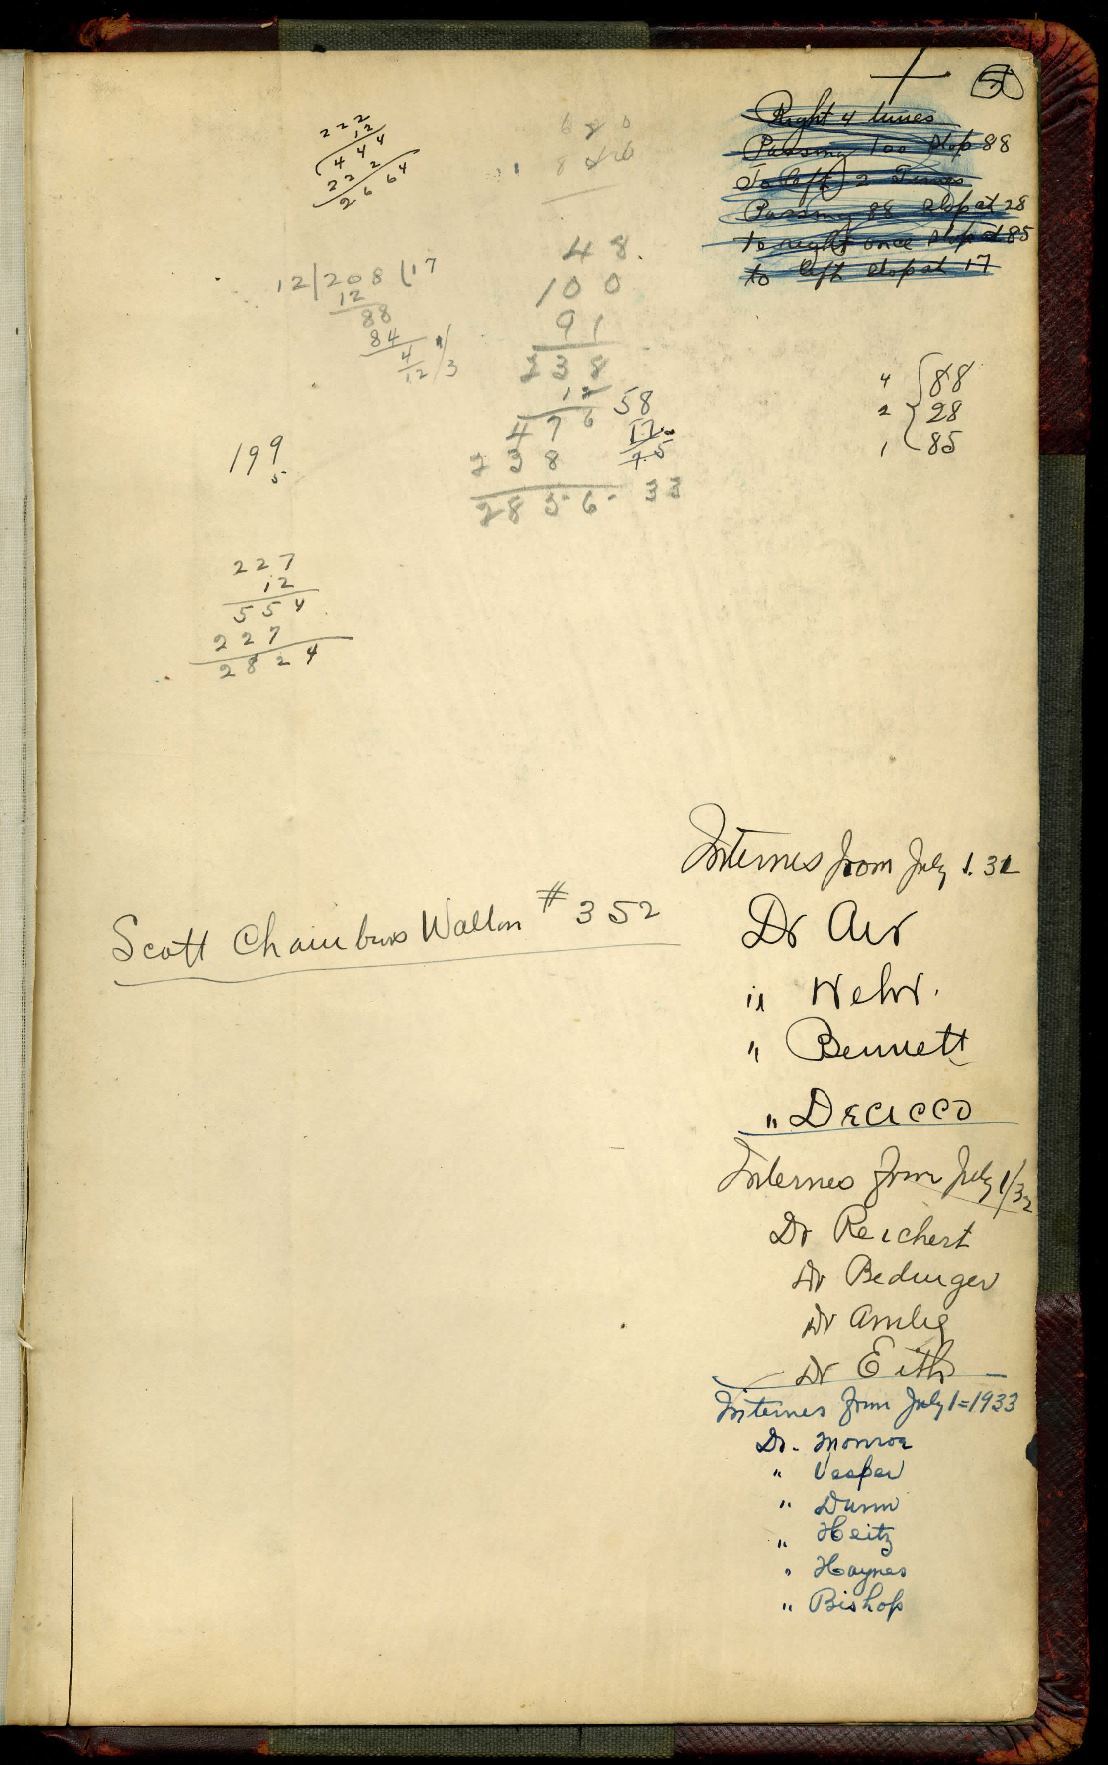 Right 4 times
Passing 100 stop 88
To left 2 Times
Passing 88 stop at 28
to right once stop at 85
to left stop at 17
222
12
444
222
2664
12/208(17
12
88
84
4
12
1/3
48.
100
91
238
12
476
238
2856.
58
17
75
33
4 { 88
2 28
1 85
199
5
227
12
554
227
2824
Internes from July 1. 31
Scott Chambers Walton #352
Dr
" Wehr.
" Bennett
" DECICCO
Internes from July 1/32
Dr Reichert
Dr Bedinger
Dr
Dr Eith
Internes from July 1=1933
Dr. Monroe
" Vesper
" Dunn
" Heitz
" Haynes
" Bishop